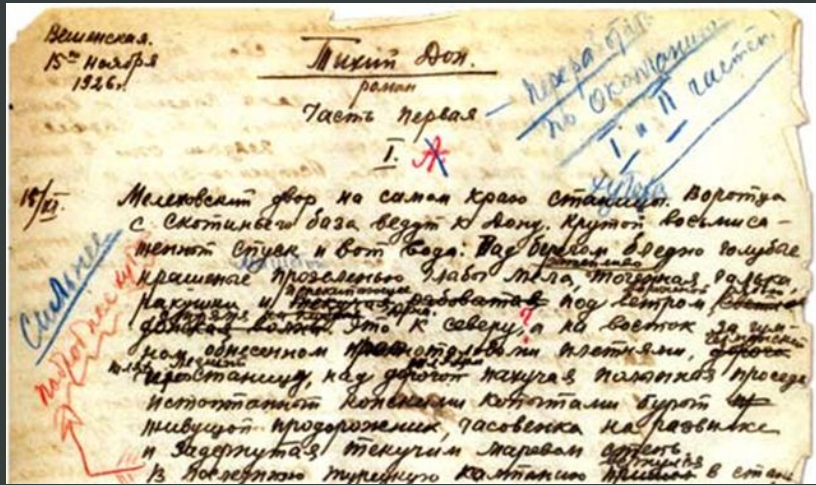 Вешенская.
15го ноября
1926г.
Тихий Дон.
роман
Часть первая
I.
по окончании
I и II частей.
хутора
15/XI.
Мелеховский двор на самом краю станицы. Воротца
с скотиньего база ведут к Дону. Крутой восьмиса-
женный спуск и вот вода: Над берегом бледно голубые
крашеные прозеленью глабы мела,
ракушки и под ветром
донская волна. Это к северу, а на восток за гум-
ном обнесенном плетнями,
станицу, над дорогой пахучая полынная проседь
истоптанный конскими копытами бурый
живущой придорожник, часовенка на развилке
и задернутая текучим маревом степь
В последнюю турецкую кампанию в стан
Сильнее
подробнее